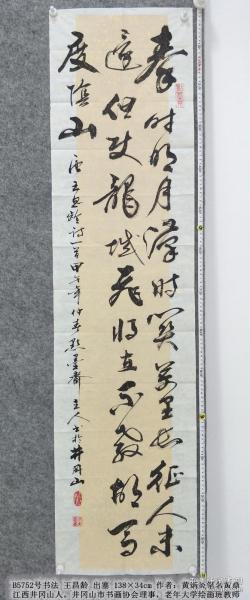 秦时明月漢时関萬里长征人未
還但使龍城飛将在不教胡馬
度陰山
唐王昌龄诗一首甲午年仲春默墨斋主人书於井岡山
B5752号书法 王昌龄 出塞 138×34cm 作者：黄
江西井冈山人，井冈山市书画协会理事，老年大学绘画班教师